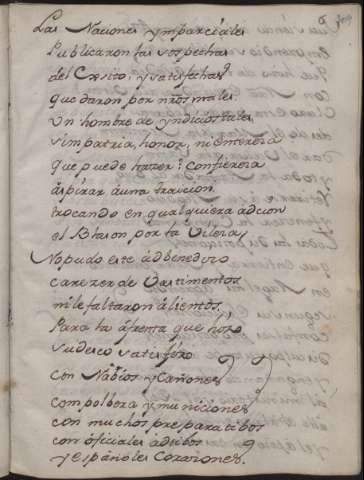 6
Las Naciones ymparciales
Publicaron las sospechas
del Caso, y satisfechas
quedaron, por nros males.
Un hombre de yndicios tales
sim patria, honor, ni entereza
que puede hazer? confiereza
aspirar auna traicion
trocando en qualquiera adcion
el Blason por la Vileza,
No pudo este adbenedizo
carezer de Vastimentos
ni le faltaron alientos
Para la afrenta que hizo.
su deseo satisfizo
con Nabios y Cañones
com polbora y municiones
con muchos preparatibos
con oficiales actibos
y españoles Corazones.